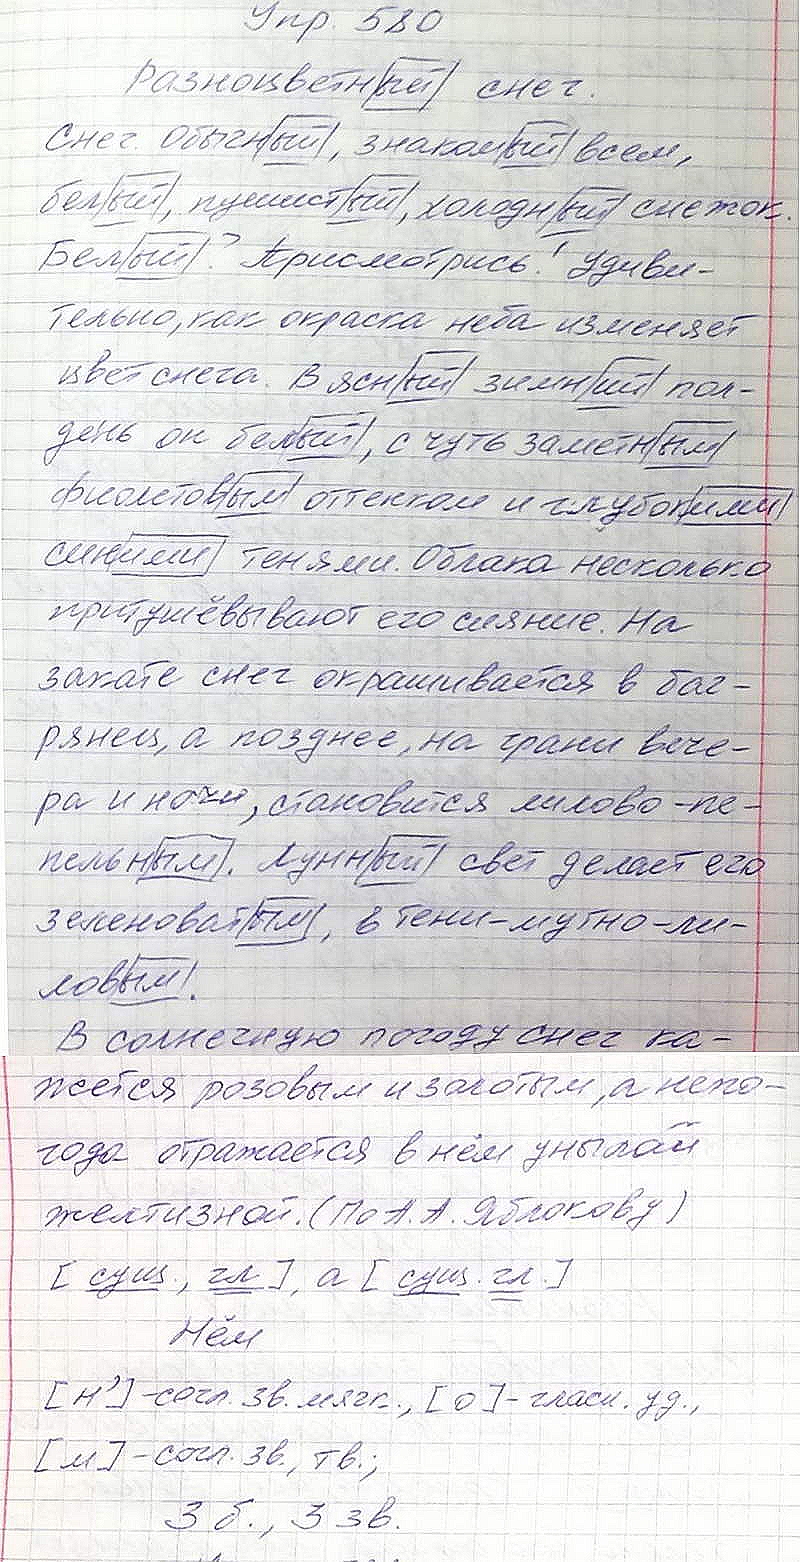 Упр. 580
Разноцветный снег.
Снег. Обычный, знакомый всем,
белый, пушистый, холодный снежок.
Белый? Присмотрись! Удиви-
тельно, как окраска неба изменяет
цвет снега. В ясный зимний пол-
день он белый, с чуть заметным
фиолетовым оттенком и глубокими
синими тенями. Облака несколько
притушёвывают его сияние. На
закате снег окрашивается в баг-
рянец, а позднее, на грани вече-
ра и ночи, становится лилово-пе-
пельным. Лунный свет делает его
зеленоватым, в тени-мутно-ли-
ловым.
В солнечную погоду снег ка-
жется розовым и золотым, а непо-
года отражается в нём унылой
желтизной. (По А. А. Яблокову)
[ сущ., гл ], а [ сущ. гл. ]
Нём
[н'] - согл. зв. мягк., [о] - гласн. уд.,
[м] - согл. зв., тв.;
3 б., 3 зв.